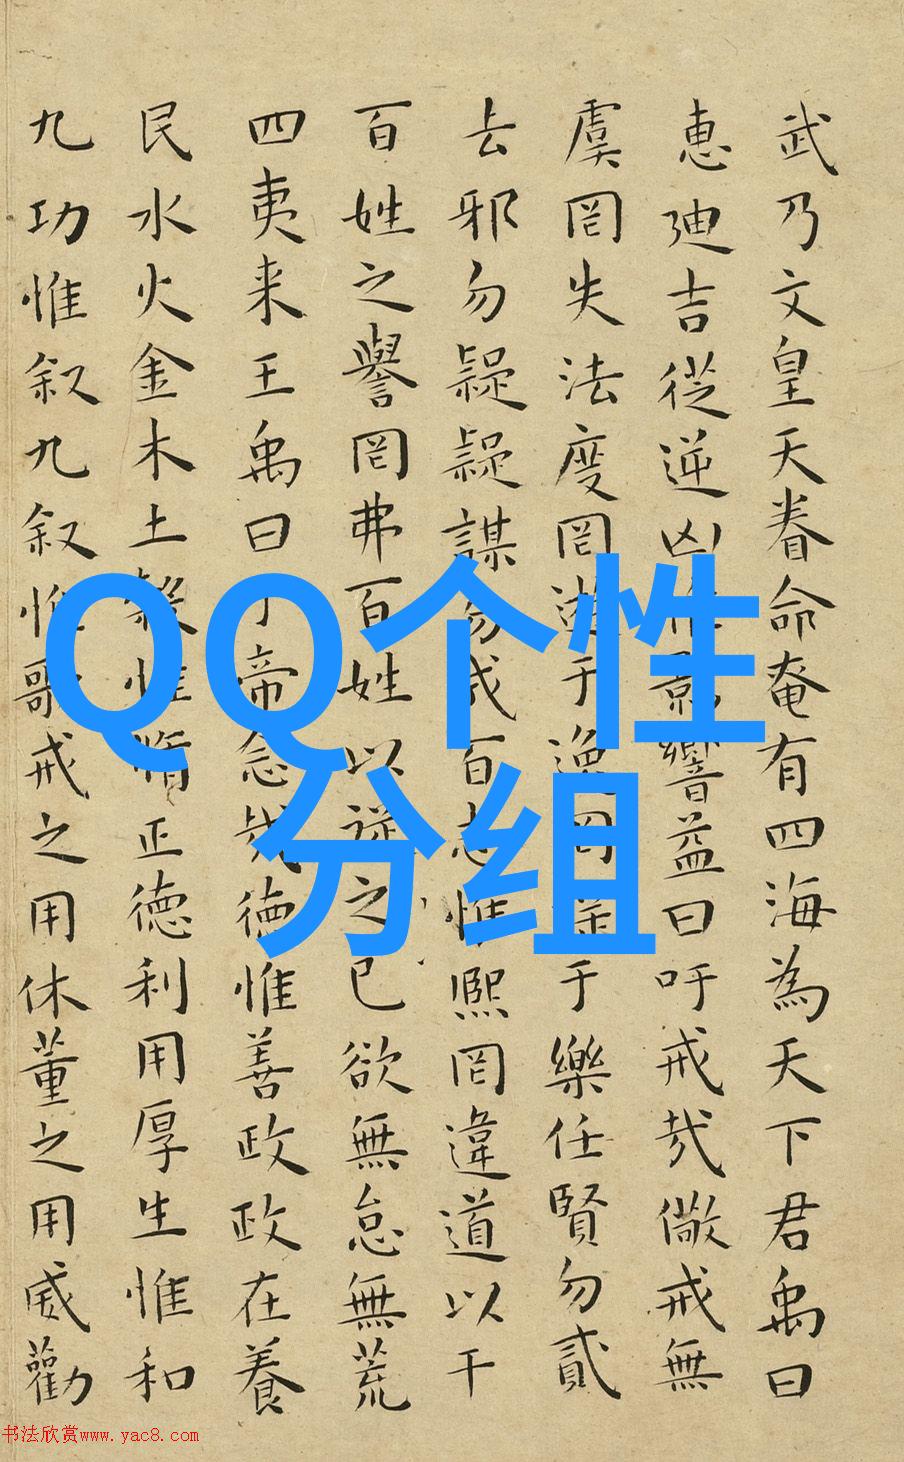 QQ个性
分组
武乃文皇天眷命奄有四海為天下君禹曰
惠迪吉從逆凶惟影響益曰吁戒哉儆戒無
虞罔失法度罔遊于逸罔淫于樂任賢勿貳
去邪勿疑疑謀勿成百志惟熙罔違道以干
百姓之譽罔弗百姓以從之己欲無怠無荒
四夷来王禹曰帝念哉德惟善政政在養
民水火金木土穀惟脩正德利用厚生惟和
九功惟叙九叙惟歌戒之用休董之用威勸
书法欣赏www.yac8.com